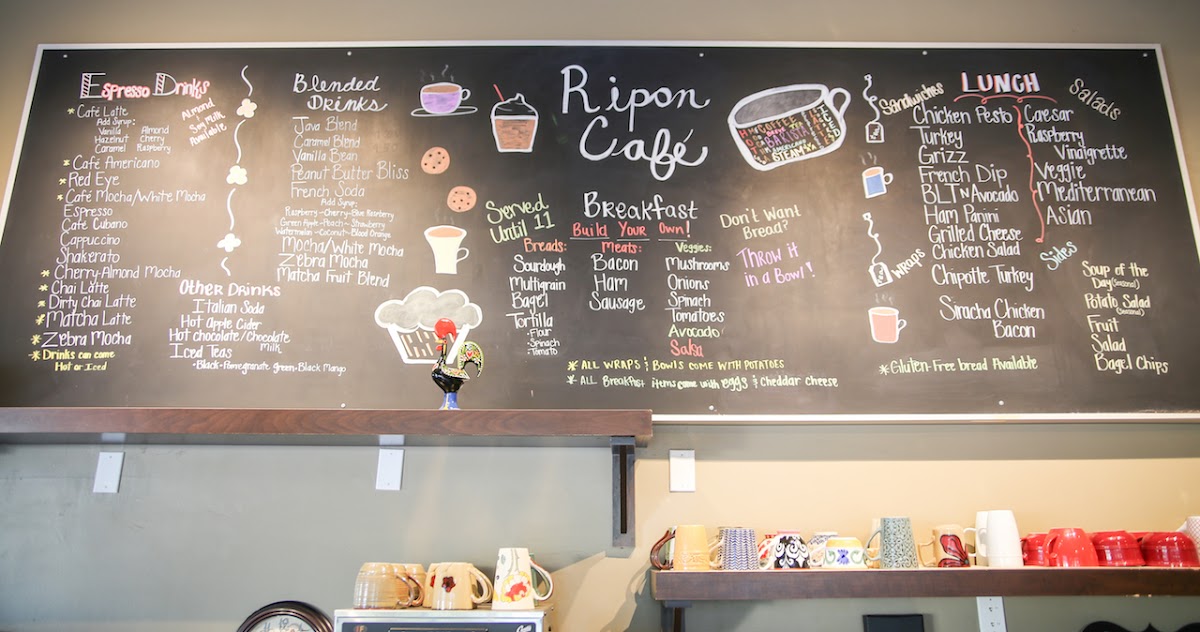 Espresso Drinks
* Café Latte
Add Syrup:
Vanilla Almond
Hazelnut Cherry
Caramel Raspberry
Almond
Soy Milk
Available
* Café Americano
* Red Eye
* Café Mocha/White Mocha
Espresso
Café Cubano
Cappuccino
Shakerato
* Cherry-Almond Mocha
* Chai Latte
* Dirty Chai Latte
* Matcha Latte
* Zebra Mocha
* Drinks can come
Hot or Iced
Blended
Drinks
Java Blend
Caramel Blend
Vanilla Bean
Peanut Butter Bliss
French Soda
Add Syrup:
Raspberry-Cherry-Blue Raspberry
Green Apple-Peach-Strawberry
Watermelon-Coconut-Blood Orange
Mocha/White Mocha
Zebra Mocha
Matcha Fruit Blend
Other Drinks
Italian Soda
Hot Apple Cider
Hot chocolate/Chocolate
Milk
Iced Teas
•Black•Pomegranate Green•Black Mango
Ripon
Café
Served
Until 11
Breakfast
Build Your Own!
Breads:
Sourdough
Multigrain
Bagel
Tortilla
-Flour
-Spinach
-Tomato
Meats:
Bacon
Ham
Sausage
Veggies:
Mushrooms
Onions
Spinach
Tomatoes
Avocado
Salsa
Don't Want
Bread?
Throw it
in a Bowl!
* All wraps & Bowls come with potatoes
* All Breakfast items come with eggs & cheddar cheese
COFFEE
BARISTA
STEAM
LUNCH
Sandwiches
Chicken Pesto
Turkey
Grizz
French Dip
BLT N Avocado
Ham Panini
Grilled Cheese
Chicken Salad
Wraps
Chipotle Turkey
Siracha Chicken
Bacon
Salads
Caesar
Raspberry
Vinaigrette
Veggie
Mediterranean
Asian
Sides
Soup of the
Day (Seasonal)
Potato Salad
(Seasonal)
Fruit
Salad
Bagel Chips
* Gluten-Free bread Available